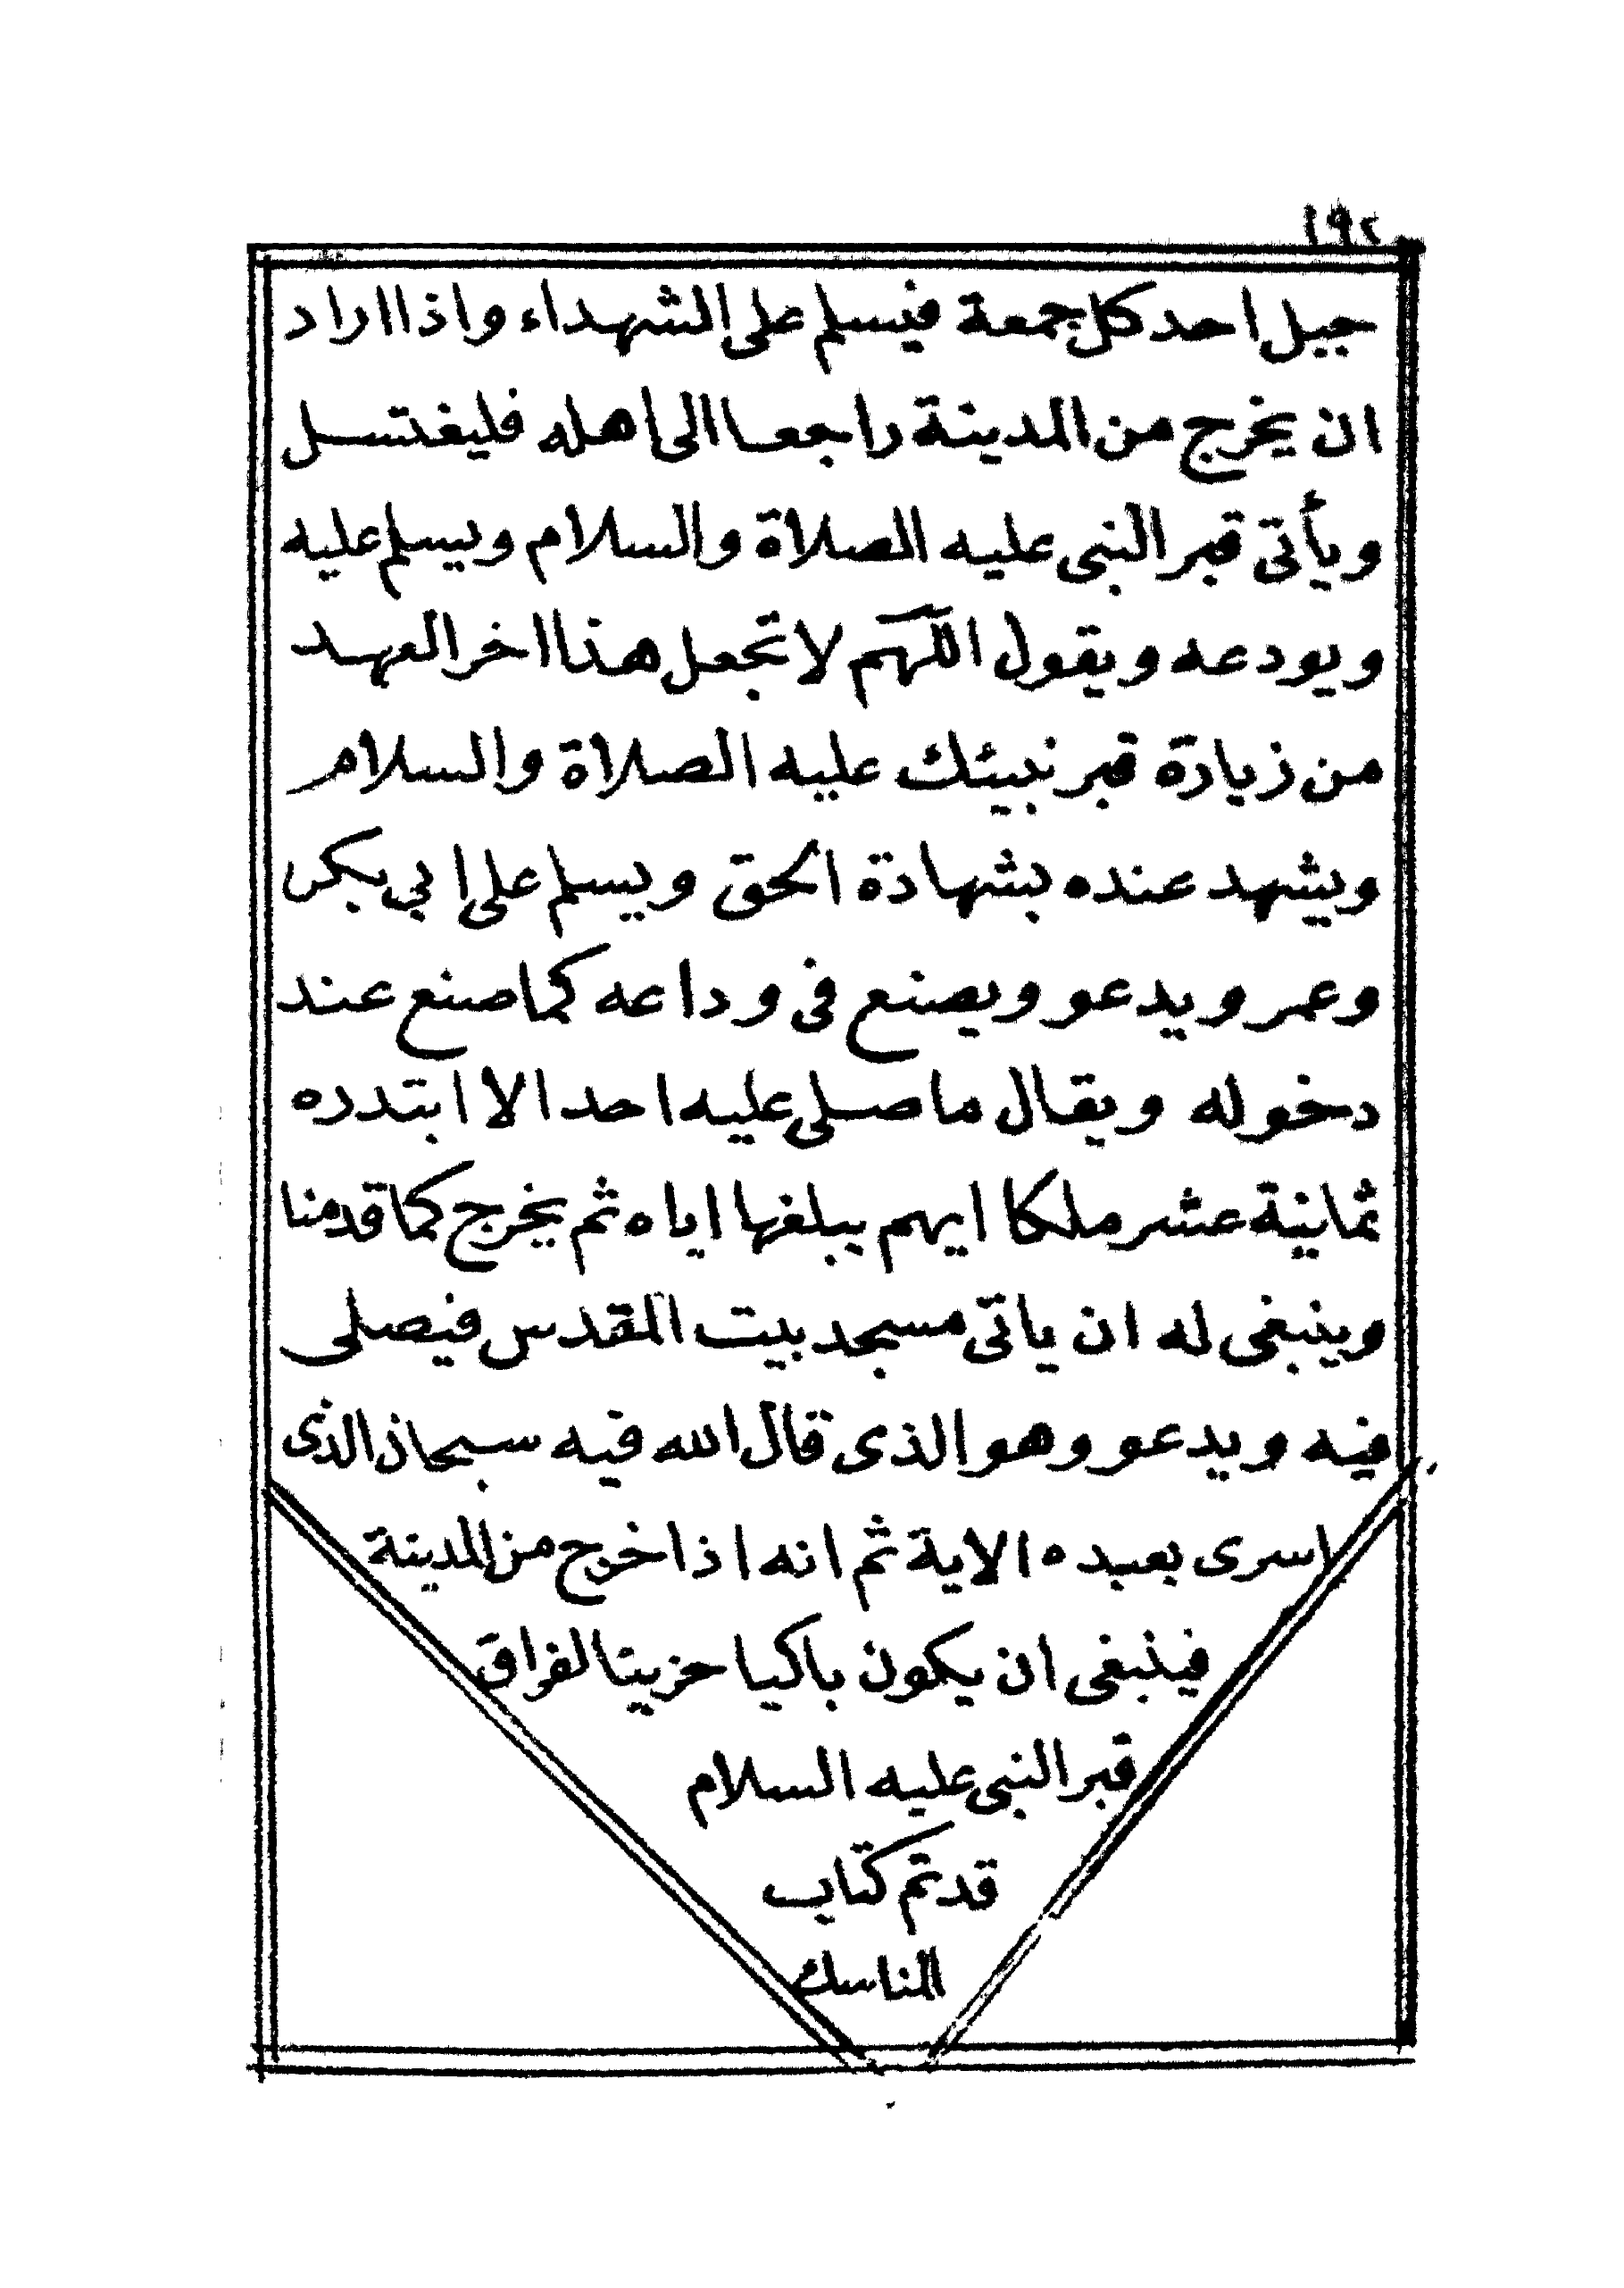 ١٩٢
جبل احد كل جمعة فيسلم على الشهداء واذا اراد
ان يخرج من المدينة راجعا الى اهله فليغتسل
ويأتى قبر النبى عليه الصلاة والسلام ويسلم عليه
ويودعه ويقول اللهم لا تجعل هذا اخر العهد
من زيارة قبر نبيئك عليه الصلاة والسلام
ويشهد عنده بشهادة الحق ويسلم على ابي بكر
وعمر ويدعو ويصنع فى وداعه كما صنع عند
دخوله ويقال ما صلى عليه احد الا ابتدره
ثمانية عشر ملكا ايهم يبلغها اياه ثم يخرج كما قدمنا
وينبغى له ان ياتى مسجد بيت المقدس فيصلى
فيه ويدعو وهو الذى قال الله فيه سبحان الذى
اسرى بعبده الاية ثم انه اذا خرج من المدينة
فينبغى ان يكون باكيا حزينا لفراق
قبر النبى عليه السلام
قد تم كتاب
المناسك